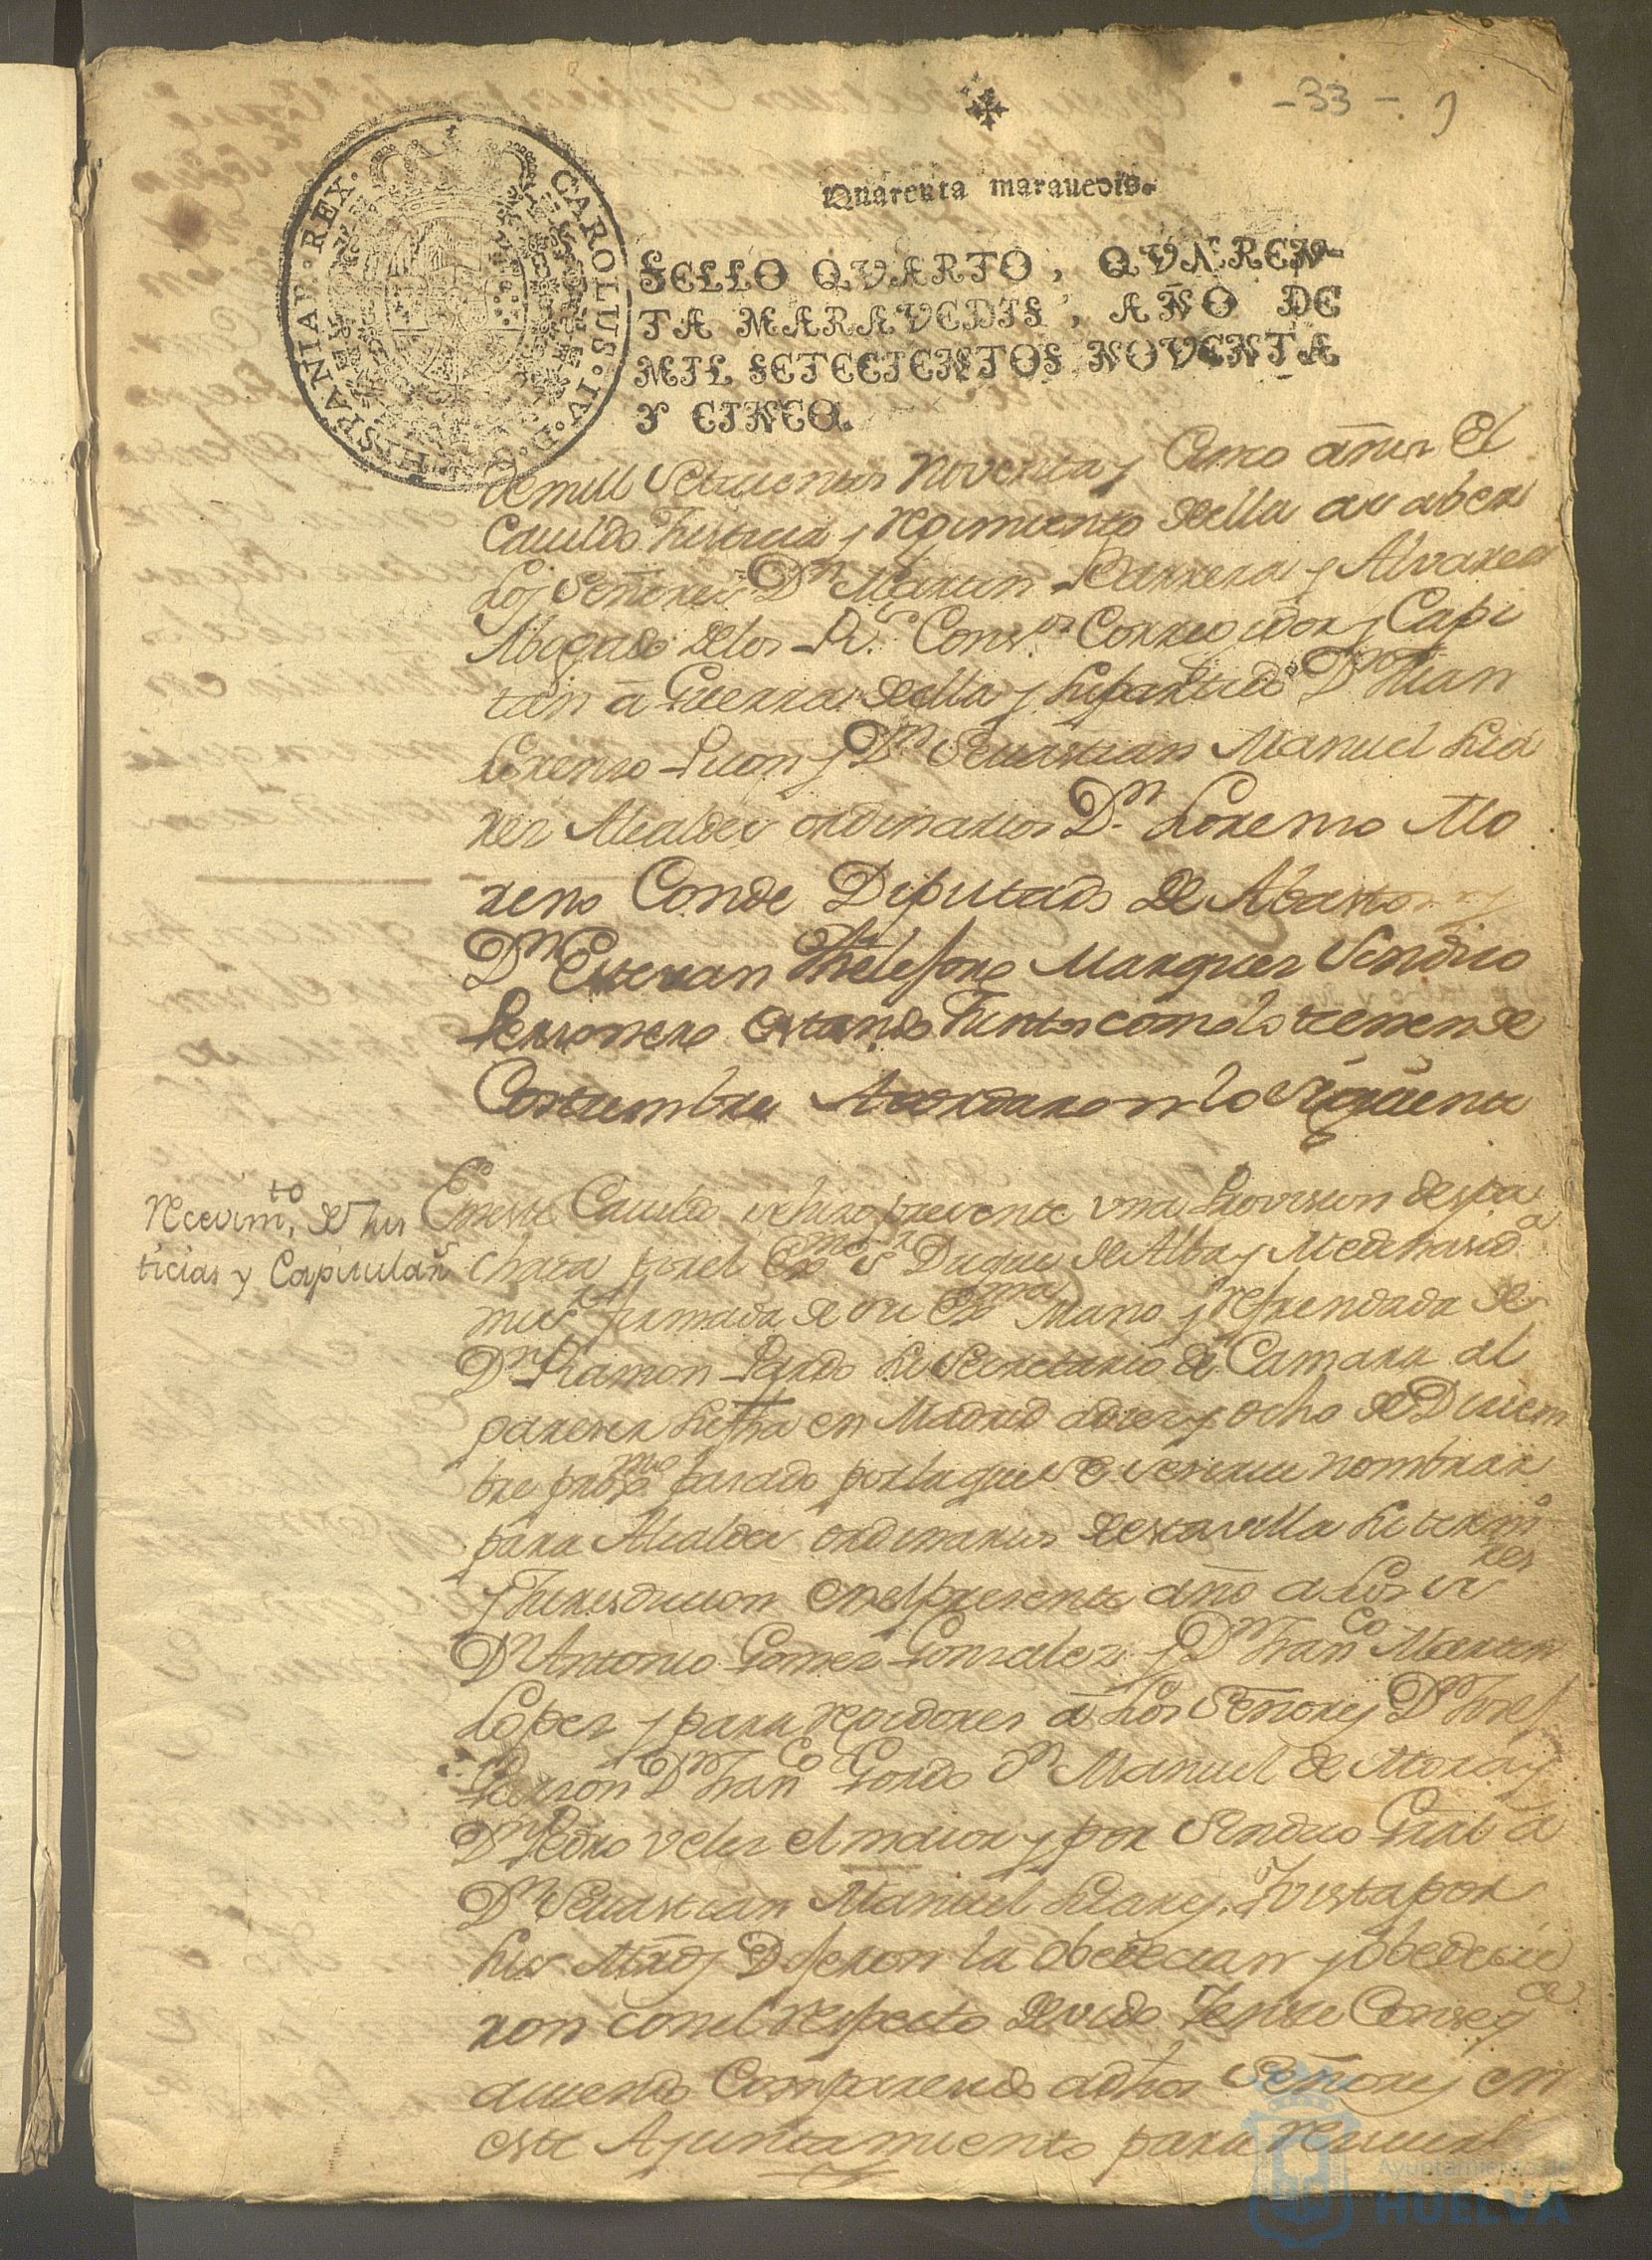 - 33 - 9
Quarenta maravedis.
CAROLUS·IV·D·G· HISPANIAR·REX·
SELLO QVARTO, QVAREN-
TA MARAVEDIS, AÑO DE
MIL SETECIENTOS NOVENTA
Y CINCO.
de mill Setecientos Noventa y Cinco años El
Cavildo Justicia y regimiento della a saber
los Señores Dn Martin Barrera y Alvarez
Abogado delos Rs Consos Corregidor y Capi
tan â Guerra della y su partido Dn Juan
Lorenzo Picon y Dn Sevastian Manuel Sua
rez Alcaldes ordinarios Dn Lorenzo Mo
reno Conde Diputado de Abastos y
Dn Estevan Thelesforo Marquez Sindico
Personero estando Juntos como lo tienen de
Costumbre Acordaron lo Siguiente
Recevimto de Jus
ticias y Capitulars
En este Cavildo se hizo presente una Provision despa
chada por el Exmo Sr Duque de Alba y Medinasida
mia firmada de su Exma Mano y refrendada de
Dn Ramon Pardo su Secretario de Camara al
parecer su fha en Madrid a diez y ocho de Diciem
bre proxmo pasado por la que se sirve nombrar
para Alcaldes ordinarios de esta villa su termo
y Jurisdiccion en el presente año a los Sres
Dn Antonio Gomez Gonzalez y Dn Franco Martin
Lopez y para regidores â los Señores Dn Josef
Garzon Dn Franco Gordo Dn Manuel de Mora y
Dn Pedro Velez el maior y por Sindico Gral â
Dn Sevastian Manuel Suarez. Y vista por
sus Mrds Dijeron la obedecian y obedecie
ron con el respecto devido Y en su Conseqa
aviendo Comparecido a dhos Señores en
este Ayuntamiento para reciuir
Ayuntamiento de
HUELVA